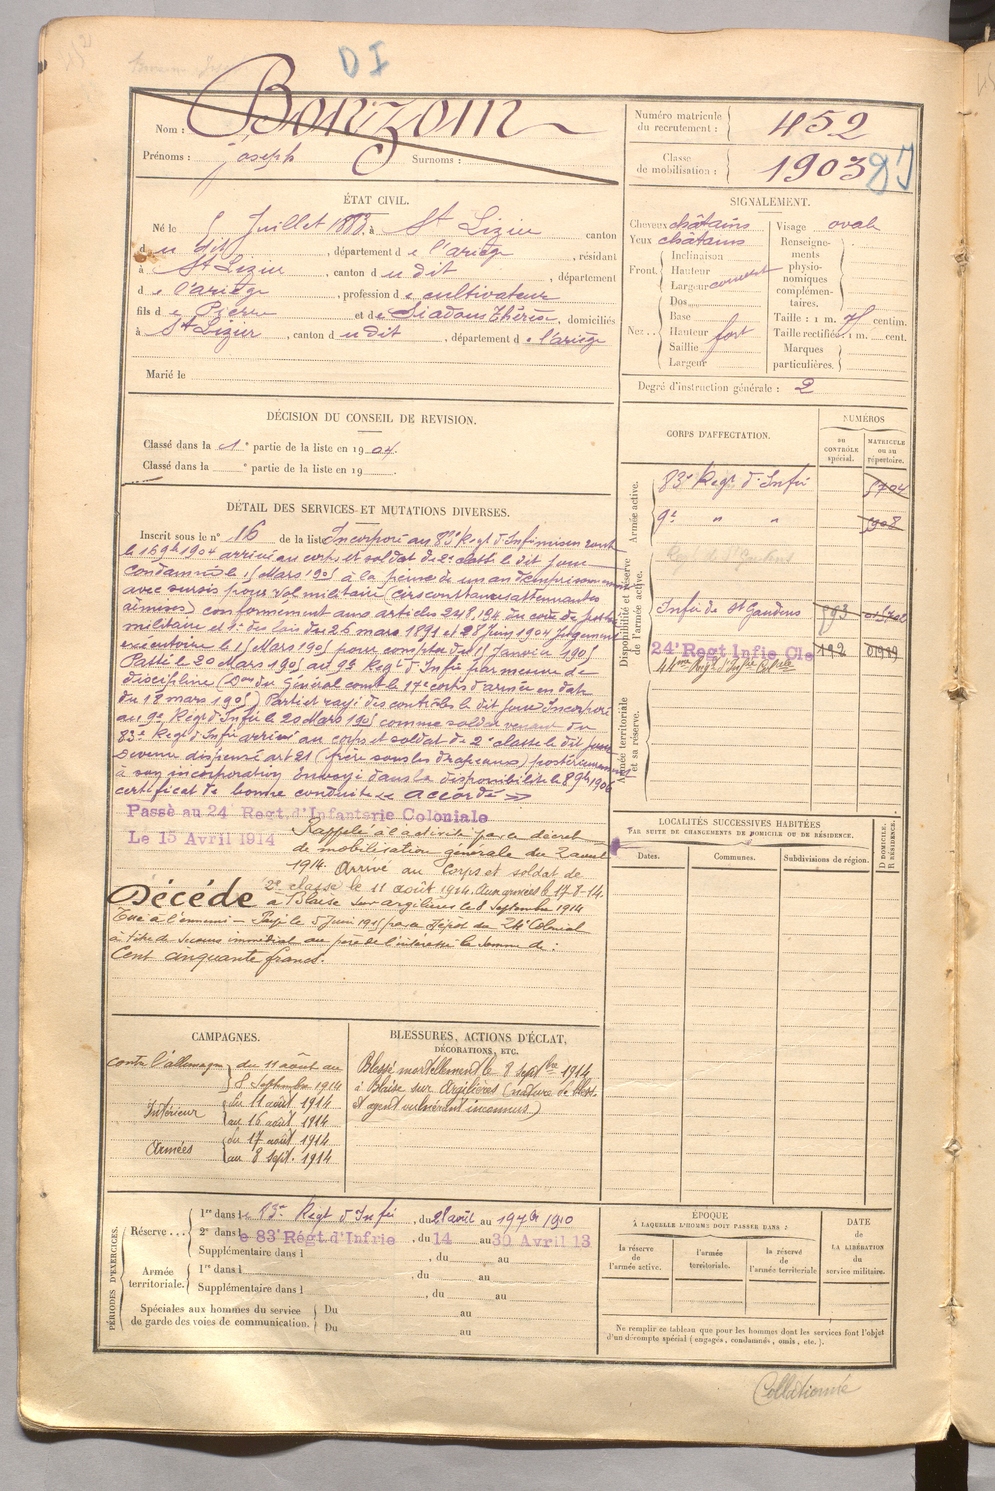 DI
Nom : Bonzom
Prénoms : Joseph Surnoms :
Numéro matricule du recrutement : 452
Classe de mobilisation : 1903
ÉTAT CIVIL.
Né le 5 Juillet 1883, à St Lizier canton
d u dit, département d e l'ariège, résidant
à St Lizier, canton d u dit, département
d e l'ariège, profession d e cultivateur
fils d e Pierre et d e Siadous Thérèse, domiciliés
à St Lizier, canton d u dit, département d e l'ariège
Marié le
SIGNALEMENT.
Cheveux châtains
Yeux châtains
Front. Inclinaison
Hauteur
Largeur
Nez. Dos
Base
Hauteur fort
Saillie
Largeur
Visage ovale
Renseignements physionomiques complémentaires.
Taille : 1 m. centim.
Taille rectifiée : 1 m. cent.
Marques particulières.
Degré d'instruction générale : 2
DÉCISION DU CONSEIL DE REVISION.
Classé dans la 1e partie de la liste en 1904.
Classé dans la e partie de la liste en 19
DÉTAIL DES SERVICES ET MUTATIONS DIVERSES.
Inscrit sous le n° 16 de la liste Incorporé au 83e Regt d'Infie
le 16 9bre 1904 arrivé au corps et soldat de 2e classe le dit jour
condamné le 15 Mars 1905 à la peine de un an d'emprisonnement
avec sursis pour vol militaire (circonstances atténuantes
admises) conformément aux articles 248, 194 du code de justice
militaire et 1er de lois du 26 mars 1891 et 28 Juin 1904 Jugement
exécutoire le 15 Mars 1905 pour compter du 15 Janvier 1905
Passé le 20 Mars 1905 au 9e Regt d'Infie par mesure de
discipline (Don du Général comt le 17e corps d'armée en date
du 18 mars 1905) Parti et rayé des contrôles le dit jour Incorporé
au 9e Regt d'Infie le 20 Mars 1905 comme soldat venant du
83e Regt d'Infie arrivé au corps et soldat de 2e classe le dit jour
Devenu dispensé art 21 (frère sous les drapeaux) postérieurement
à son incorporation Envoyé dans la disponibilité le 8 9bre 1906
certificat de bonne conduite « accordé »
Passé au 24 Regt. d'Infanterie Coloniale
Le 15 Avril 1914
Rappelé à l'activité par le décret
de mobilisation générale du 2 aout
1914. Arrivé au Corps et soldat de
2e classe le 11 août 1914. Aux armées le 17-8-14.
Décédé à Blaise sur argilières le 8 septembre 1914
Tué à l'ennemi — Payé le 5 Juin 1915 par le Dépôt du 24e Colonial
à titre de secours immédiat au père de l'intéressé la somme de :
Cent cinquante francs.
CORPS D'AFFECTATION.
NUMÉROS
DU CONTRÔLE spécial.
MATRICULE ou au répertoire.
Armée active.
83e Regt d'Infie
9e " "
Disponibilité et réserve de l'armée active.
Regt de St Gaudens
Infie de St Gaudens
24e Regt Infie Cle 192
44me Regt d'Infie Colale
Armée territoriale et sa réserve.
LOCALITÉS SUCCESSIVES HABITÉES
PAR SUITE DE CHANGEMENTS DE DOMICILE OU DE RÉSIDENCE.
Dates. Communes. Subdivisions de région.
D DOMICILE. R RÉSIDENCE.
CAMPAGNES.
contre l'allemagne du 11 août au
8 Septembre 1914
Intérieur du 11 août 1914
au 16 août 1914
Armées du 17 août 1914
au 8 sept. 1914
BLESSURES, ACTIONS D'ÉCLAT,
DÉCORATIONS, ETC.
Blessé mortellement le 8 septbre 1914
à Blaise sur Argilières (nature de bless.
et agent vulnérant inconnus)
PÉRIODES D'EXERCICES.
Réserve... 1re dans le 83e Regt d'Infie, du 28 août au 19 7bre 1910
2e dans le 83e Régt. d'Infrie, du 14 au 30 Avril 13
Supplémentaire dans l , du au
Armée territoriale. 1re dans l , du au
Supplémentaire dans l , du au
Spéciales aux hommes du service de garde des voies de communication. Du au
Du au
ÉPOQUE
À LAQUELLE L'HOMME DOIT PASSER DANS :
la réserve de l'armée active.
l'armée territoriale.
la réserve de l'armée territoriale
DATE DE LA LIBÉRATION du service militaire.
Ne remplir ce tableau que pour les hommes dont les services font l'objet
d'un décompte spécial (engagés, condamnés, omis, etc.).
Collationné